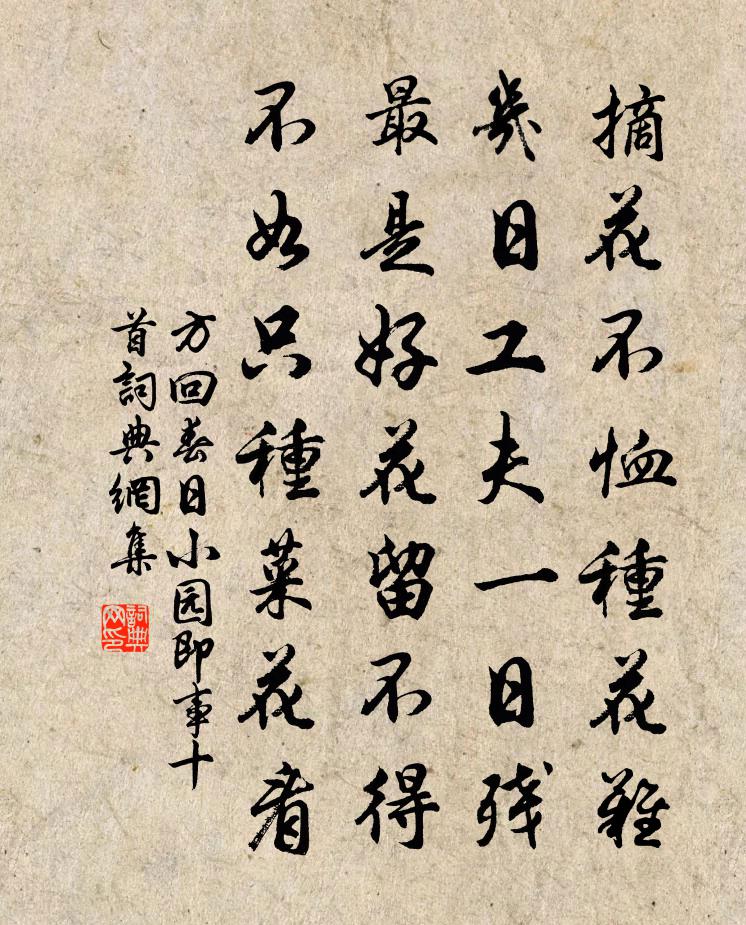 摘花不恤種花難
幾日工夫一日残
最是好花留不得
不如只種菜花看
方回春日小园即事十
首詞典網集
詞典
网印